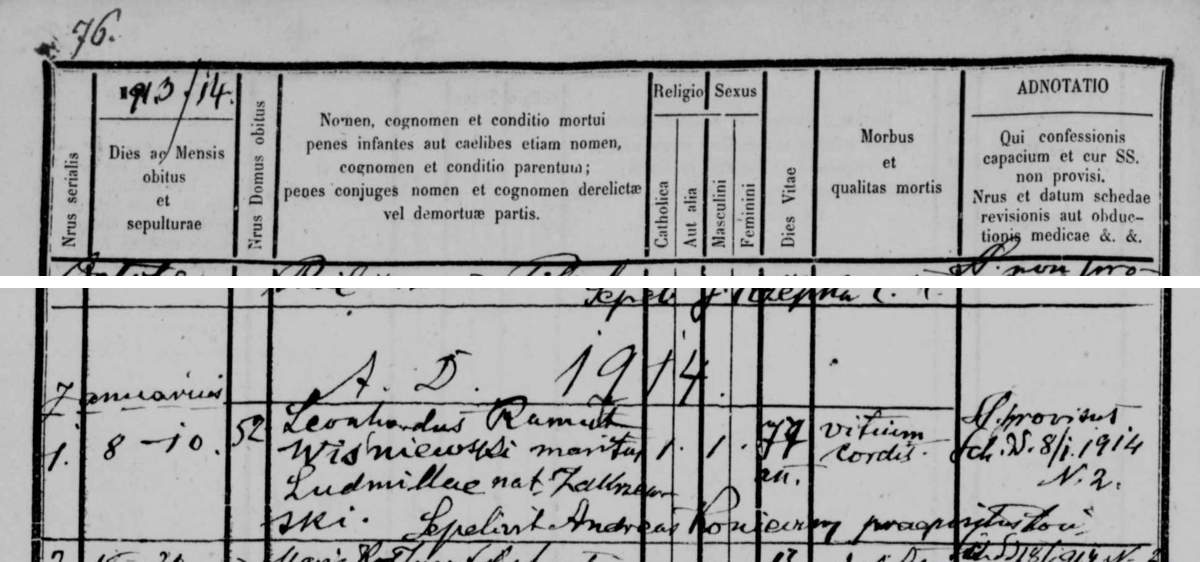 76.
1913/14.
Nrus serialis
Dies ac Mensis
obitus
et
sepulturae
Nrus Domus obitus
Nomen, cognomen et conditio mortui
penes infantes aut caelibes etiam nomen,
cognomen et conditio parentum;
penes conjuges nomen et cognomen derelictæ
vel demortuæ partis.
Religio
Catholica
Aut alia
Sexus
Masculini
Feminini
Dies Vitae
Morbus
et
qualitas mortis
ADNOTATIO
Qui confessionis
capacium et cur SS.
non provisi.
Nrus et datum schedae
revisionis aut obduc-
tionis medicae &. &.
non pro-
A. D. 1914.
Januarius
1. 8 - 10. 52
Leonhardus Ramułt
Wiśniewski maritus
Ludmillae nat. Zakrzew
ski.
1. 1. 79
an.
vitium
cordis.
provisus
Sch. N. 8/I. 1914
N. 2.
Sepelivit Andreas